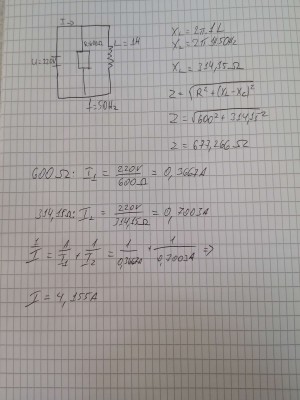 I→
R600Ω
L=1H
U=220V
f=50Hz
XL=2π.f.L
XL=2π.1.50Hz
XL=314,15Ω
Z=√R²+(XL-XC)²
Z=√600²+314,15²
Z=677,266Ω
600Ω: I1=220V/600Ω=0,3667A
314,15Ω: I2=220V/314,15Ω=0,7003A
1/I=1/I1+1/I2=1/0,3667A+1/0,7003A=>
I=4,155A